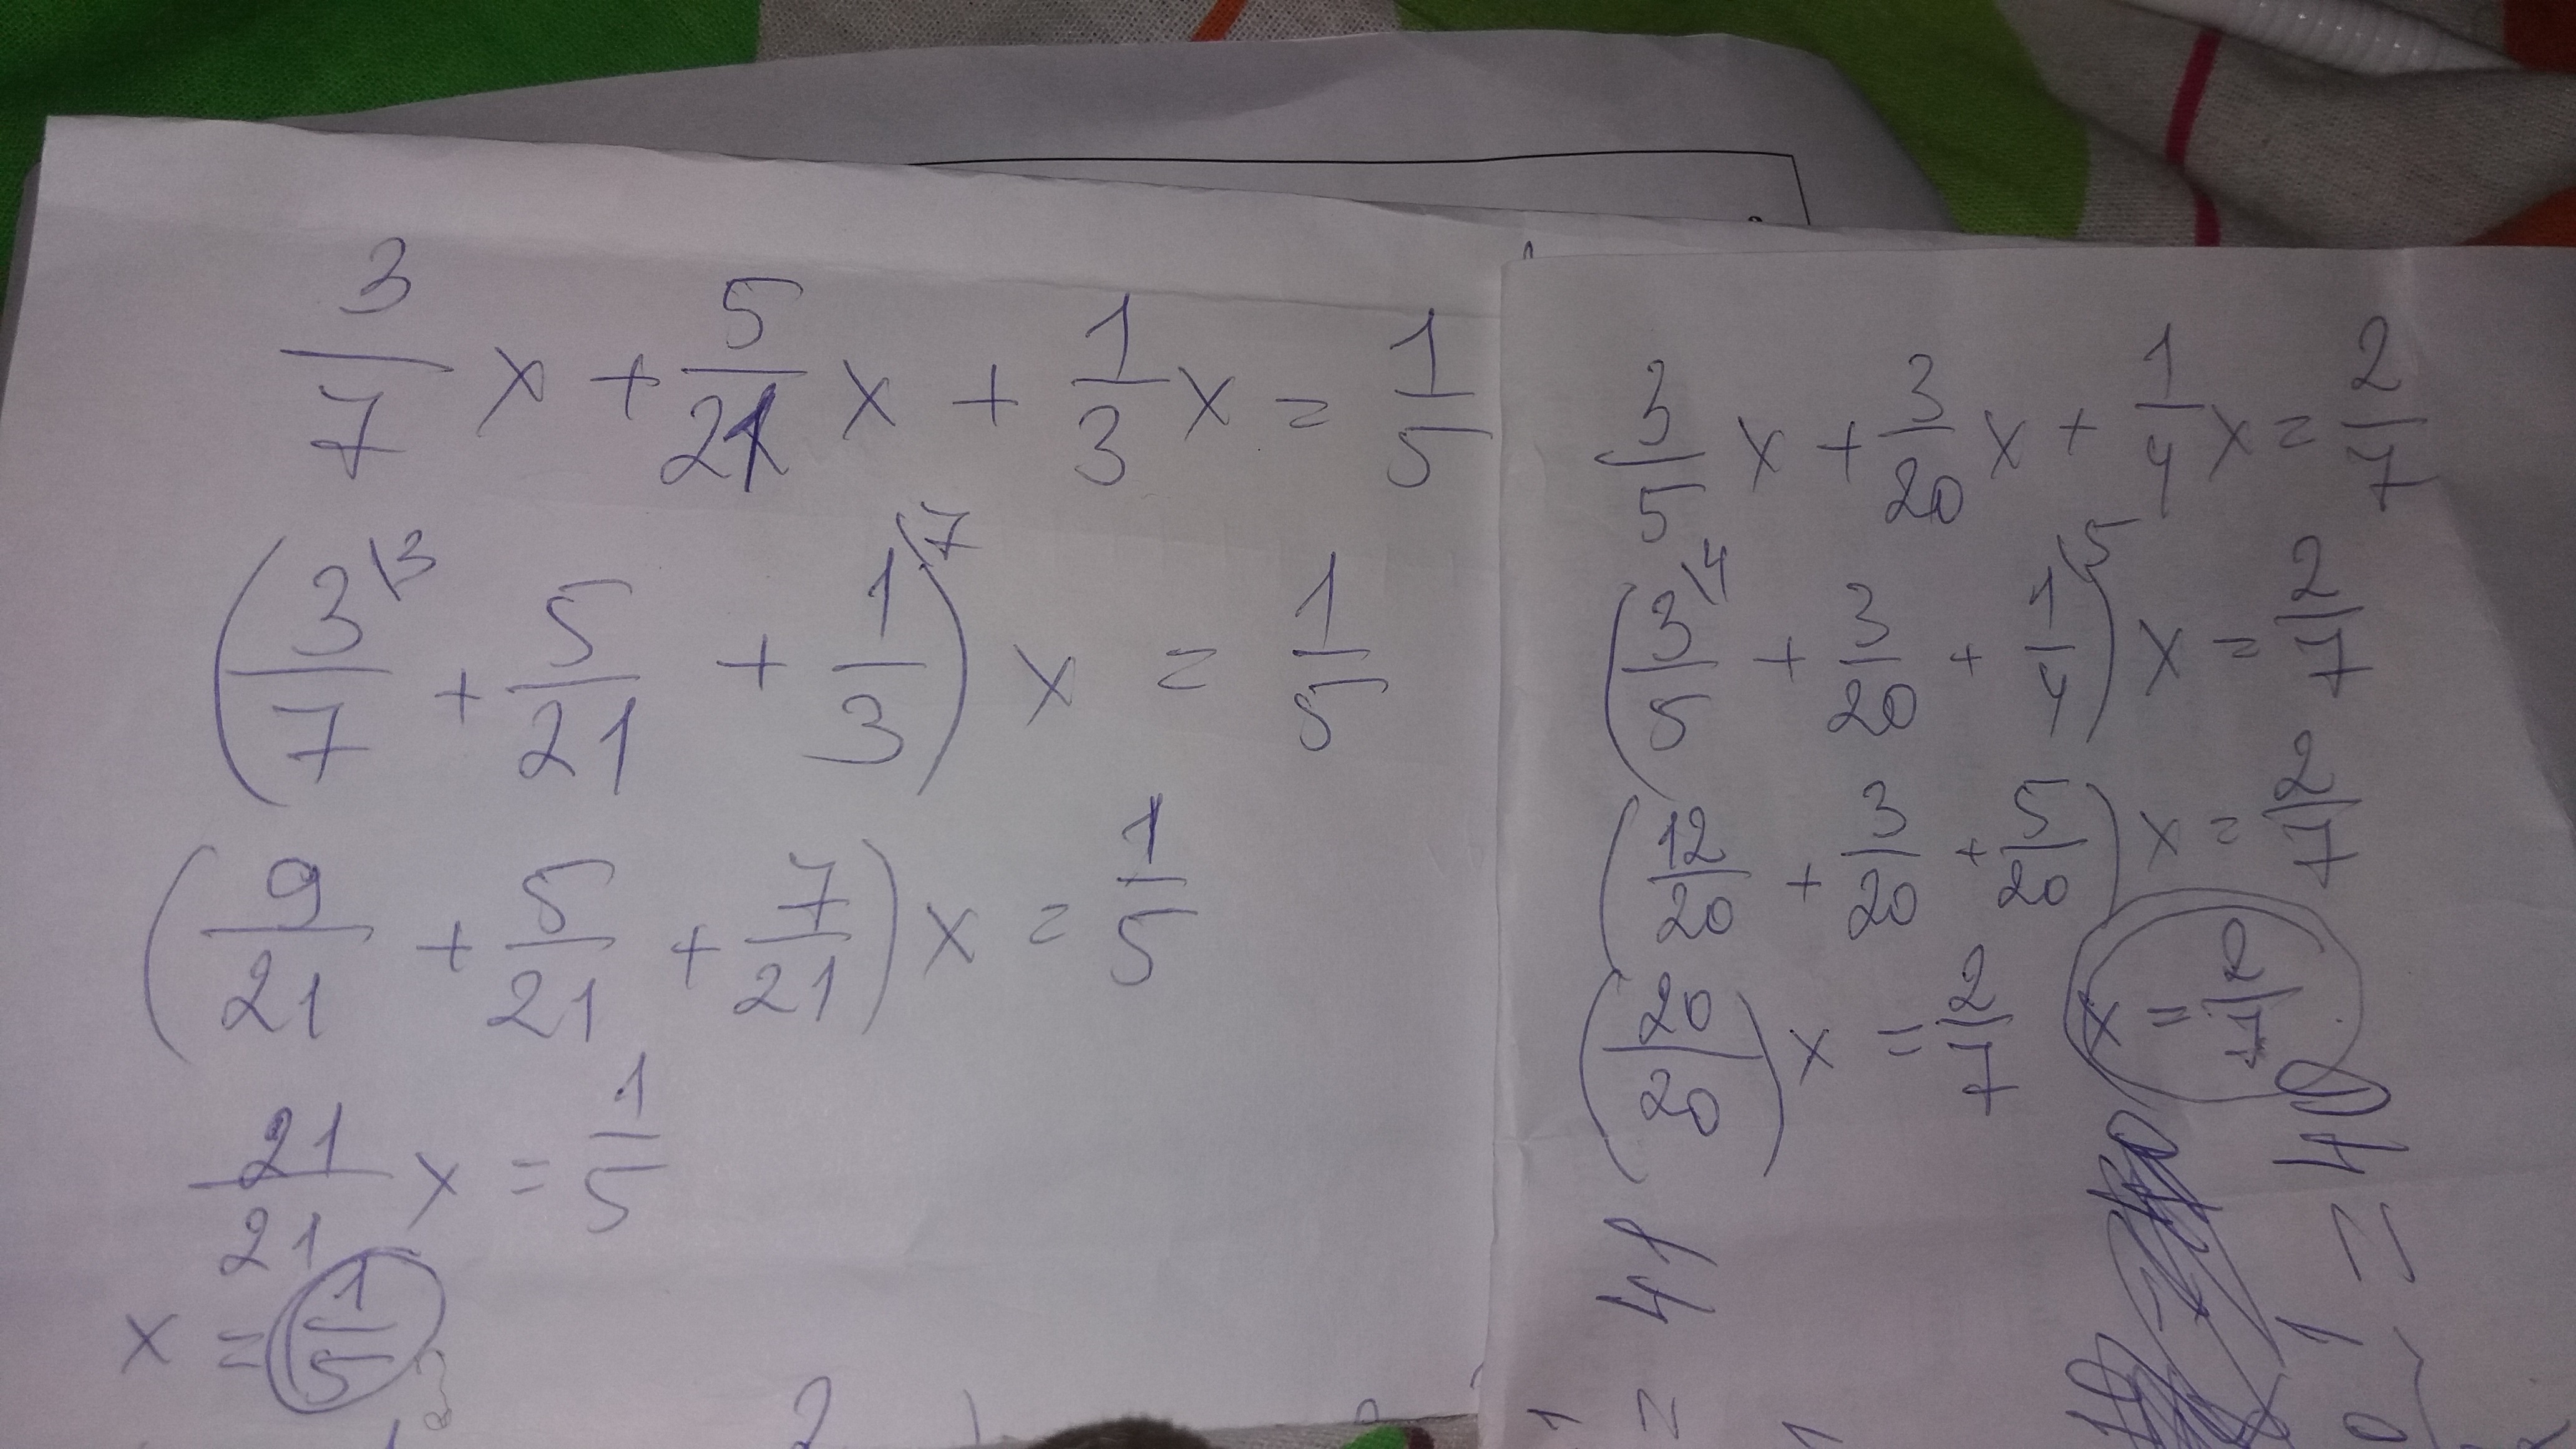 3/7 x + 5/21 x + 1/3 x = 1/5
(3\3/7 + 5/21 + 1\7/3) x = 1/5
(9/21 + 5/21 + 7/21) x = 1/5
21/21 x = 1/5
x = 1/5
3/5 x + 3/20 x + 1/4 x = 2/7
(3\4/5 + 3/20 + 1\5/4) x = 2/7
(12/20 + 3/20 + 5/20) x = 2/7
(20/20) x = 2/7
x = 2/7